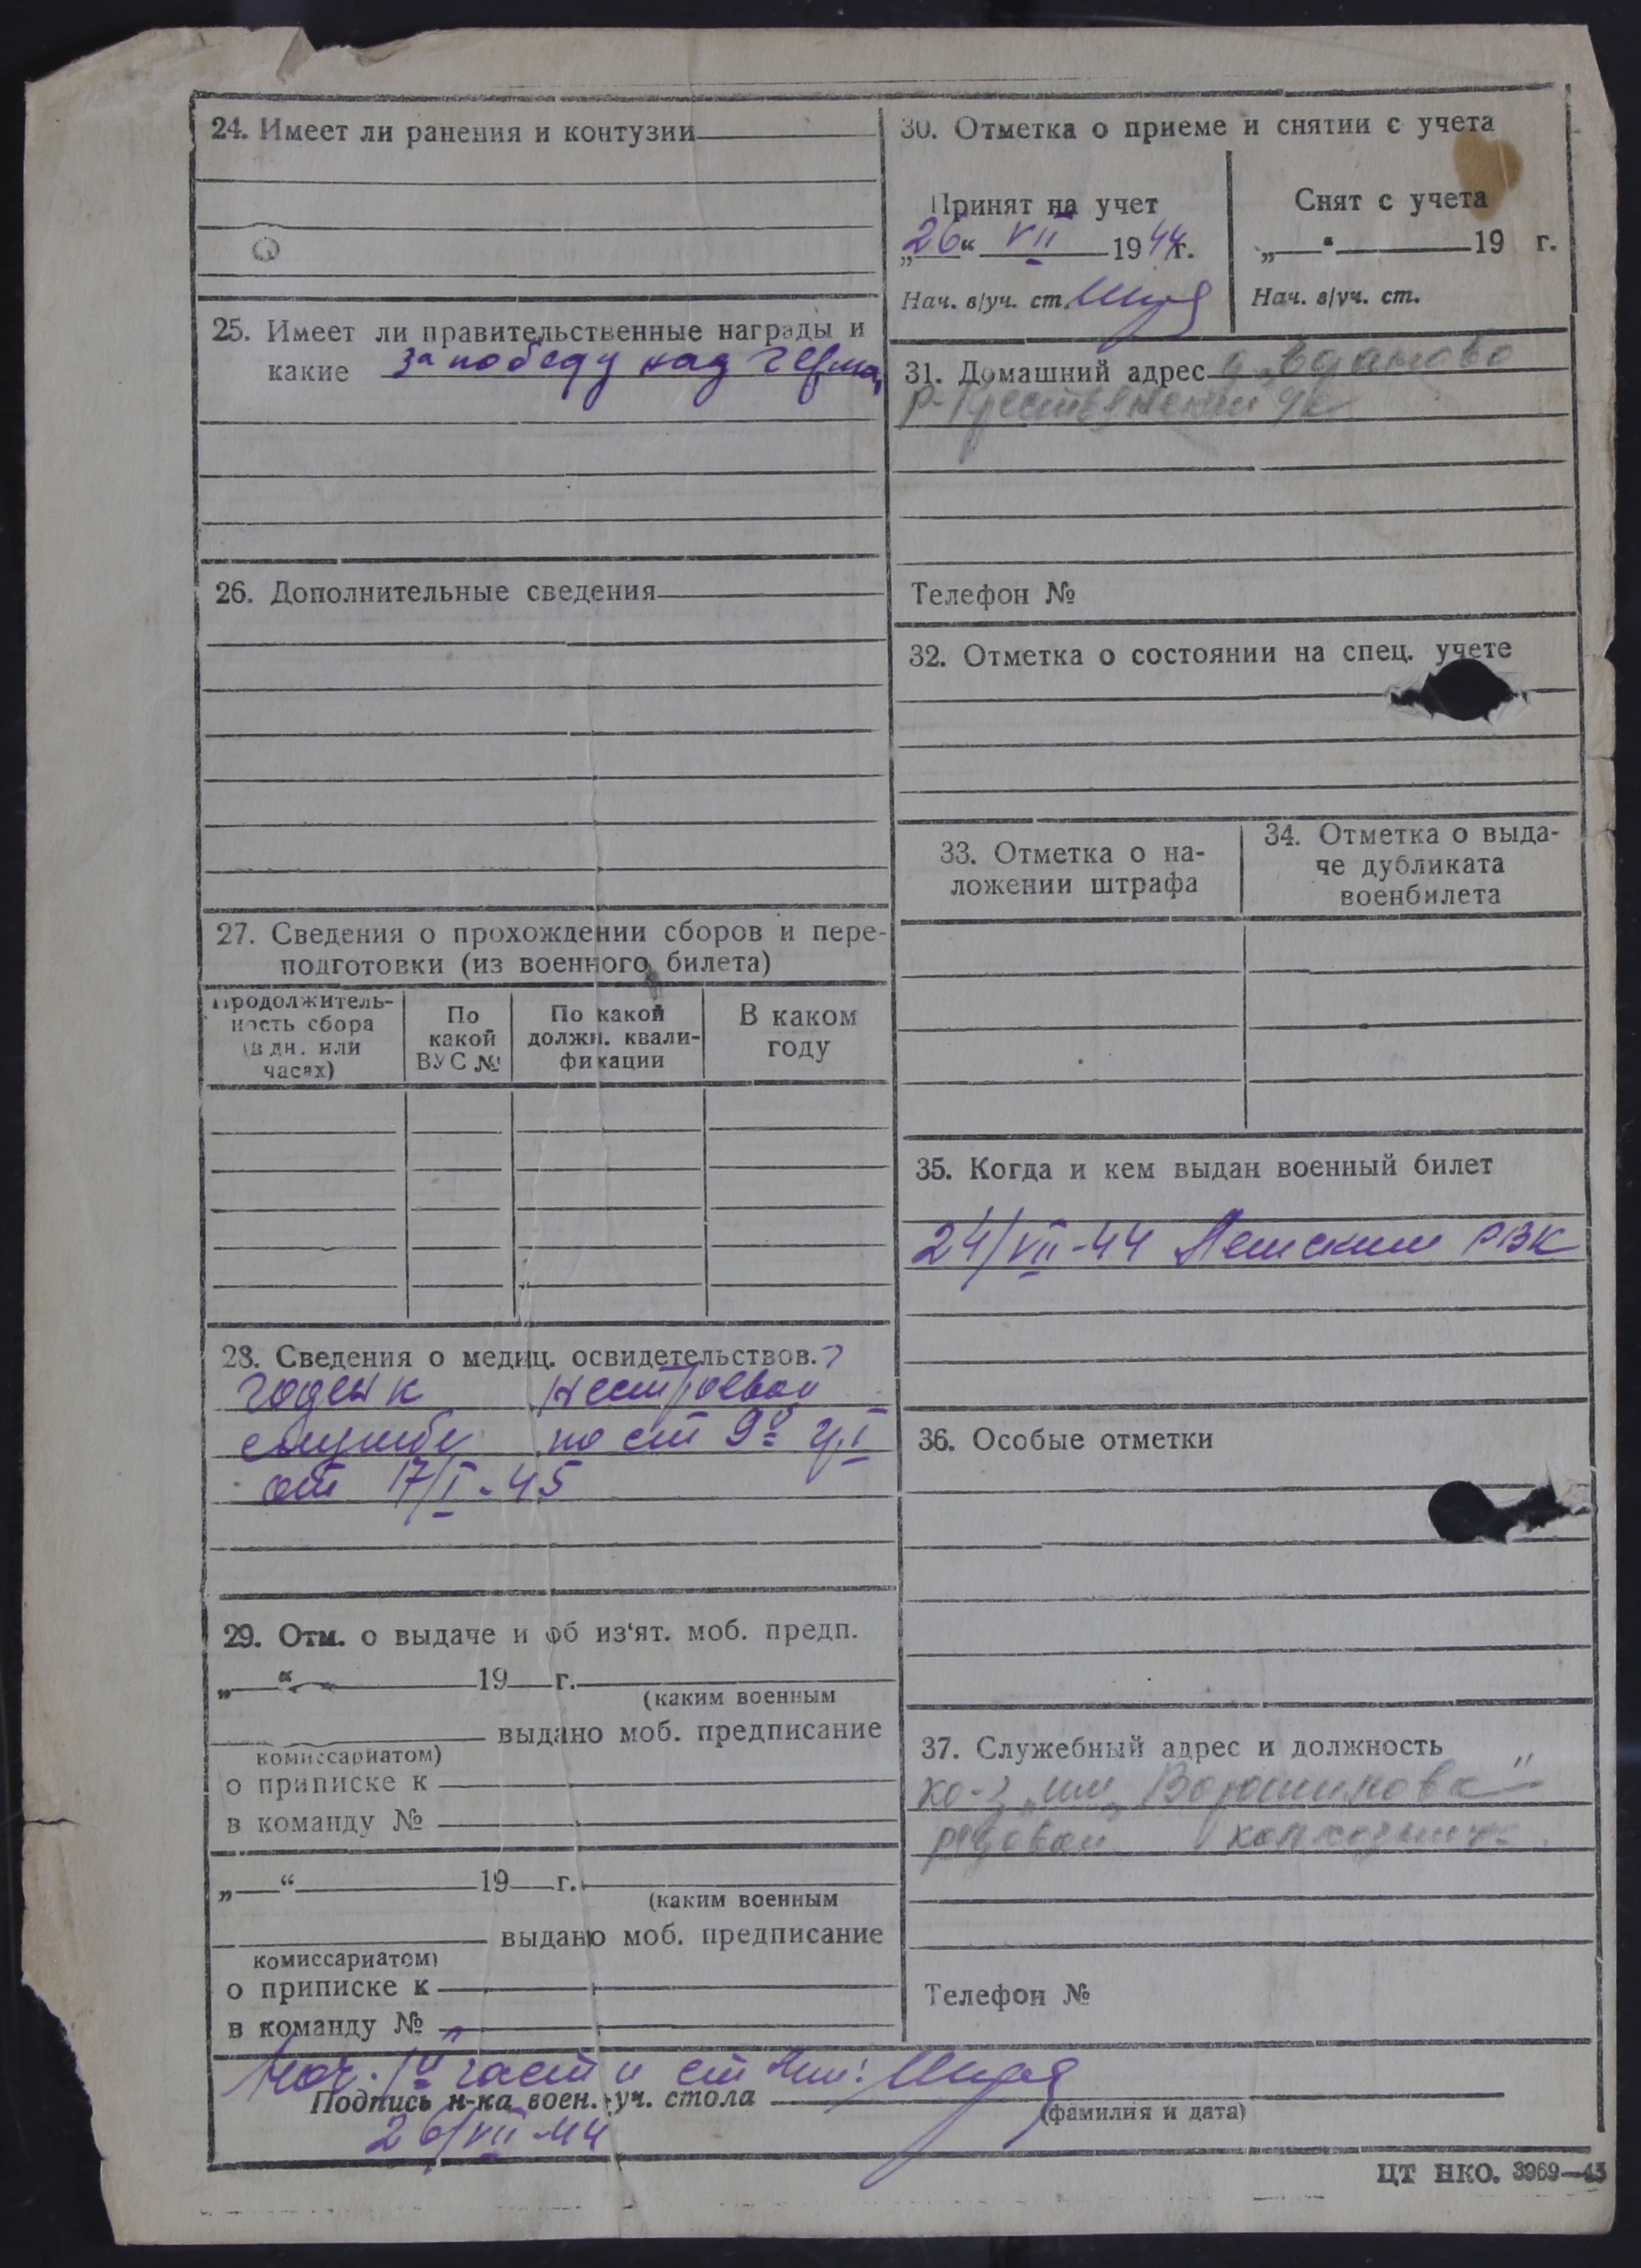 24. Имеет ли ранения и контузии
25. Имеет ли правительственные награды и
какие за победу над Герма,
26. Дополнительные сведения
27. Сведения о прохождении сборов и пере-
подготовки (из военного билета)
Продолжитель-
ность сбора
(в дн. или
часах)
По
какой
ВУС №
По какой
должн. квали-
фикации
В каком
году
28. Сведения о медиц. освидетельствов.
годен к нестроевой
службе по ст 9а гр I
от 17/I-45
29. Отм. о выдаче и об из‘ят. моб. предп.
„ “ 19 г.
(каким военным
выдано моб. предписание
комиссариатом)
о приписке к
в команду №
„ “ 19 г.
(каким военным
выдано моб. предписание
комиссариатом)
о приписке к
в команду №
30. Отметка о приеме и снятии с учета
Принят на учет
„26“ VII 1944г.
Нач. в/уч. ст.
Снят с учета
„ “ 19 г.
Нач. в/уч. ст.
31. Домашний адрес д.
Р-
Телефон №
32. Отметка о состоянии на спец. учете
33. Отметка о на-
ложении штрафа
34. Отметка о выда-
че дубликата
военбилета
35. Когда и кем выдан военный билет
24/VII-44 РВК
36. Особые отметки
37. Служебный адрес и должность
ко-з „им Ворошилова“
рядовой колхозник
Телефон №
Нач. 1й части ст
Подпись н-ка воен.-уч. стола
(фамилия и дата)
26/VII-44
ЦТ НКО. 3969—43